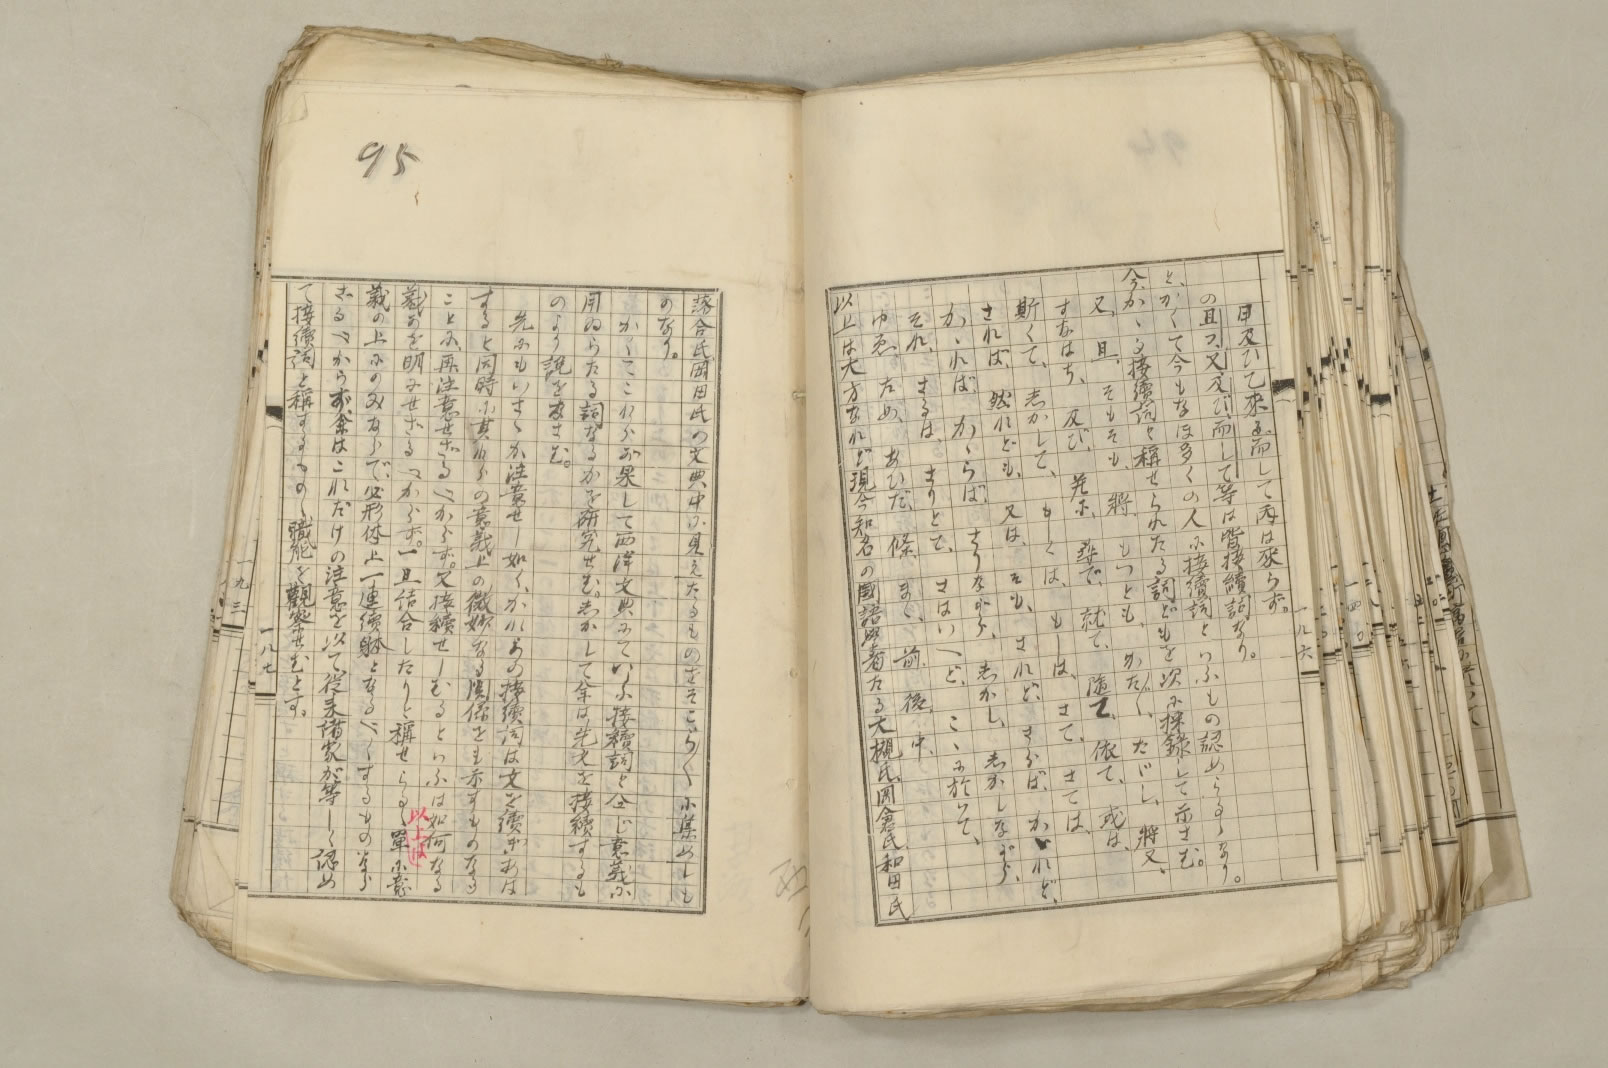 甲及び乙來る而して丙は來らず。
の且つ、又、及び、而して等は皆接續詞なり。
とかくて今もなほ多くの人に接續詞といふもの認めらるゝなり。
今かゝる接續詞と稱せられたる詞どもを次に採録して示さむ。
又、且、そもそも、將、もつとも、かたく、たゞし、將又、
すなはち、及び、并に、尋で、就て、隨て、依て、或は、
斯くて、しかして、もしくは、もしは、さて、さては、
されば、然れども、又は、そも、されど、さらば、かゝれど、
かゝれば、かゝらば、さりながら、しかし、しかしながら、
それ、さるは、さりとて、さはいへど、こゝに於いて、
ゆゑ、ため、あひだ、條、まで、前、後、中、
以上は大方なれど現今知名の國語學者たる大槻氏岡倉氏和田氏
一八六
95
落合氏岡田氏の文典中に見えたるものをそこばく小集めしも
のなり。
かくてこれらが果して西洋文典にていふ接續詞と仝じ意義に
用ゐらたる詞なるかを研究せむ。しかして余は先文を接續するも
のより説を立さむ。
先にもいさゝか注意せし如く、かれらの接續詞は文を續があは
すると同時に其れらの意義上の微妙なる關係をも示すものなる
ことに再注意せざるべからず。又接續せしむるといふは如何なる
義なるを明にせざるべからず。一且結合したりと稱せらるゝ以上は單に意
義の上にのみならで、必形体上一連續躰となるべくするものなら
ざるべからず余はこれだけの注意を以て從来諸家が等しく認め
て接續詞と稱するものゝ職能を觀察せむとす。
一八七
一九三